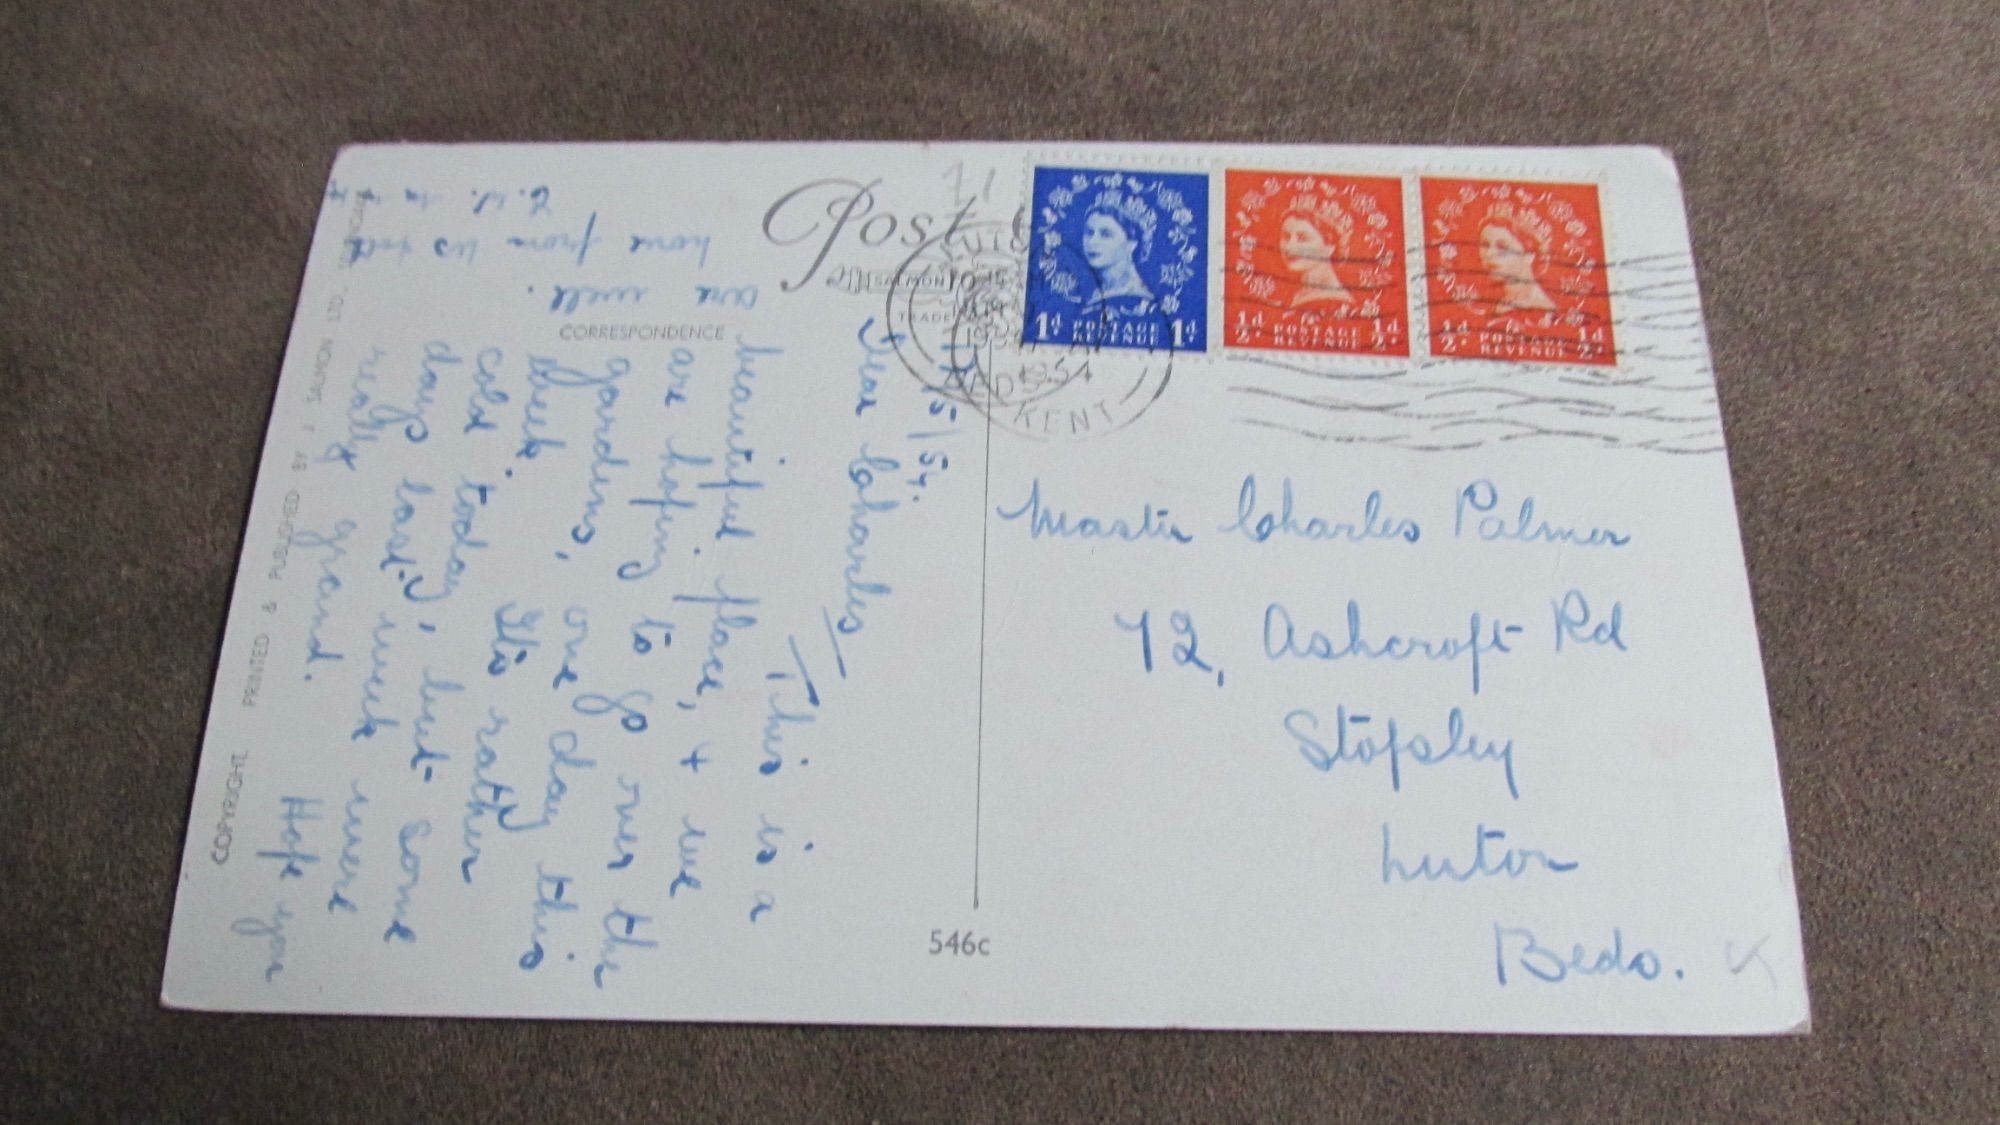 Post
CORRESPONDENCE
SALMON
TRADE
COPYRIGHT PRINTED & PUBLISHED BY J SALMON LTD. SEVENOAKS
546c
1d POSTAGE REVENUE 1d
½d POSTAGE REVENUE ½d
½d POSTAGE REVENUE ½d
1954
KENT
5/54.
Dear Charles
This is a
beautiful place, + we
are hoping to go over the
gardens, one day this
week. It is rather
cold today, but some
days last week were
really grand.
Hope you
are well.
love from us
Master Charles Palmer
72, Ashcroft Rd
Stopsley
Luton
Beds.